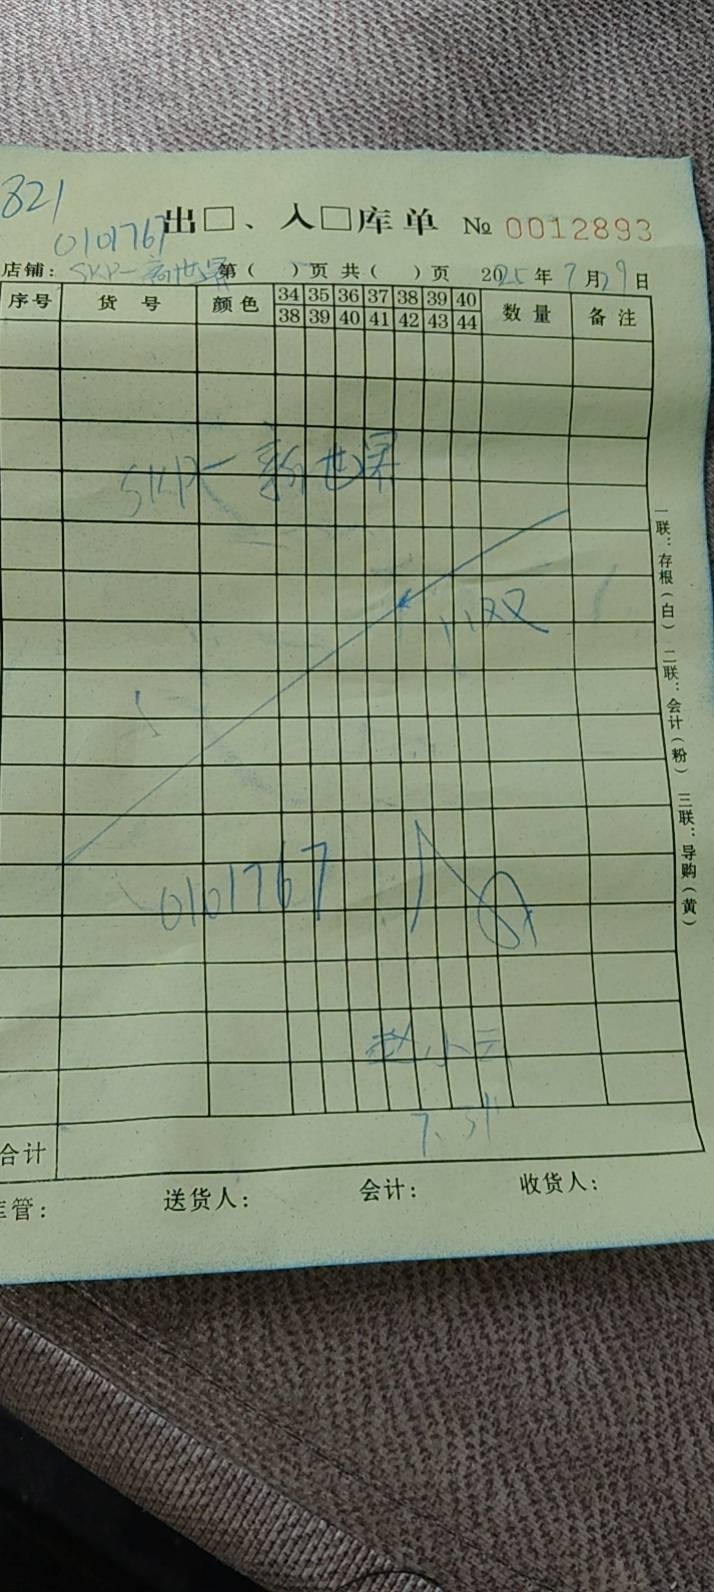 821
出□、入□库单 № 0012893
0101767
店铺: SKP—新世界 第( )页 共( )页 2025年7月29日
序号 货 号 颜 色 34 35 36 37 38 39 40 数 量 备 注
38 39 40 41 42 43 44
SKP— 新世界
11双
0101767
赵小云
7.31
合计
库管: 送货人: 会计: 收货人:
一联:存根(白) 二联:会计(粉) 三联:导购(黄)